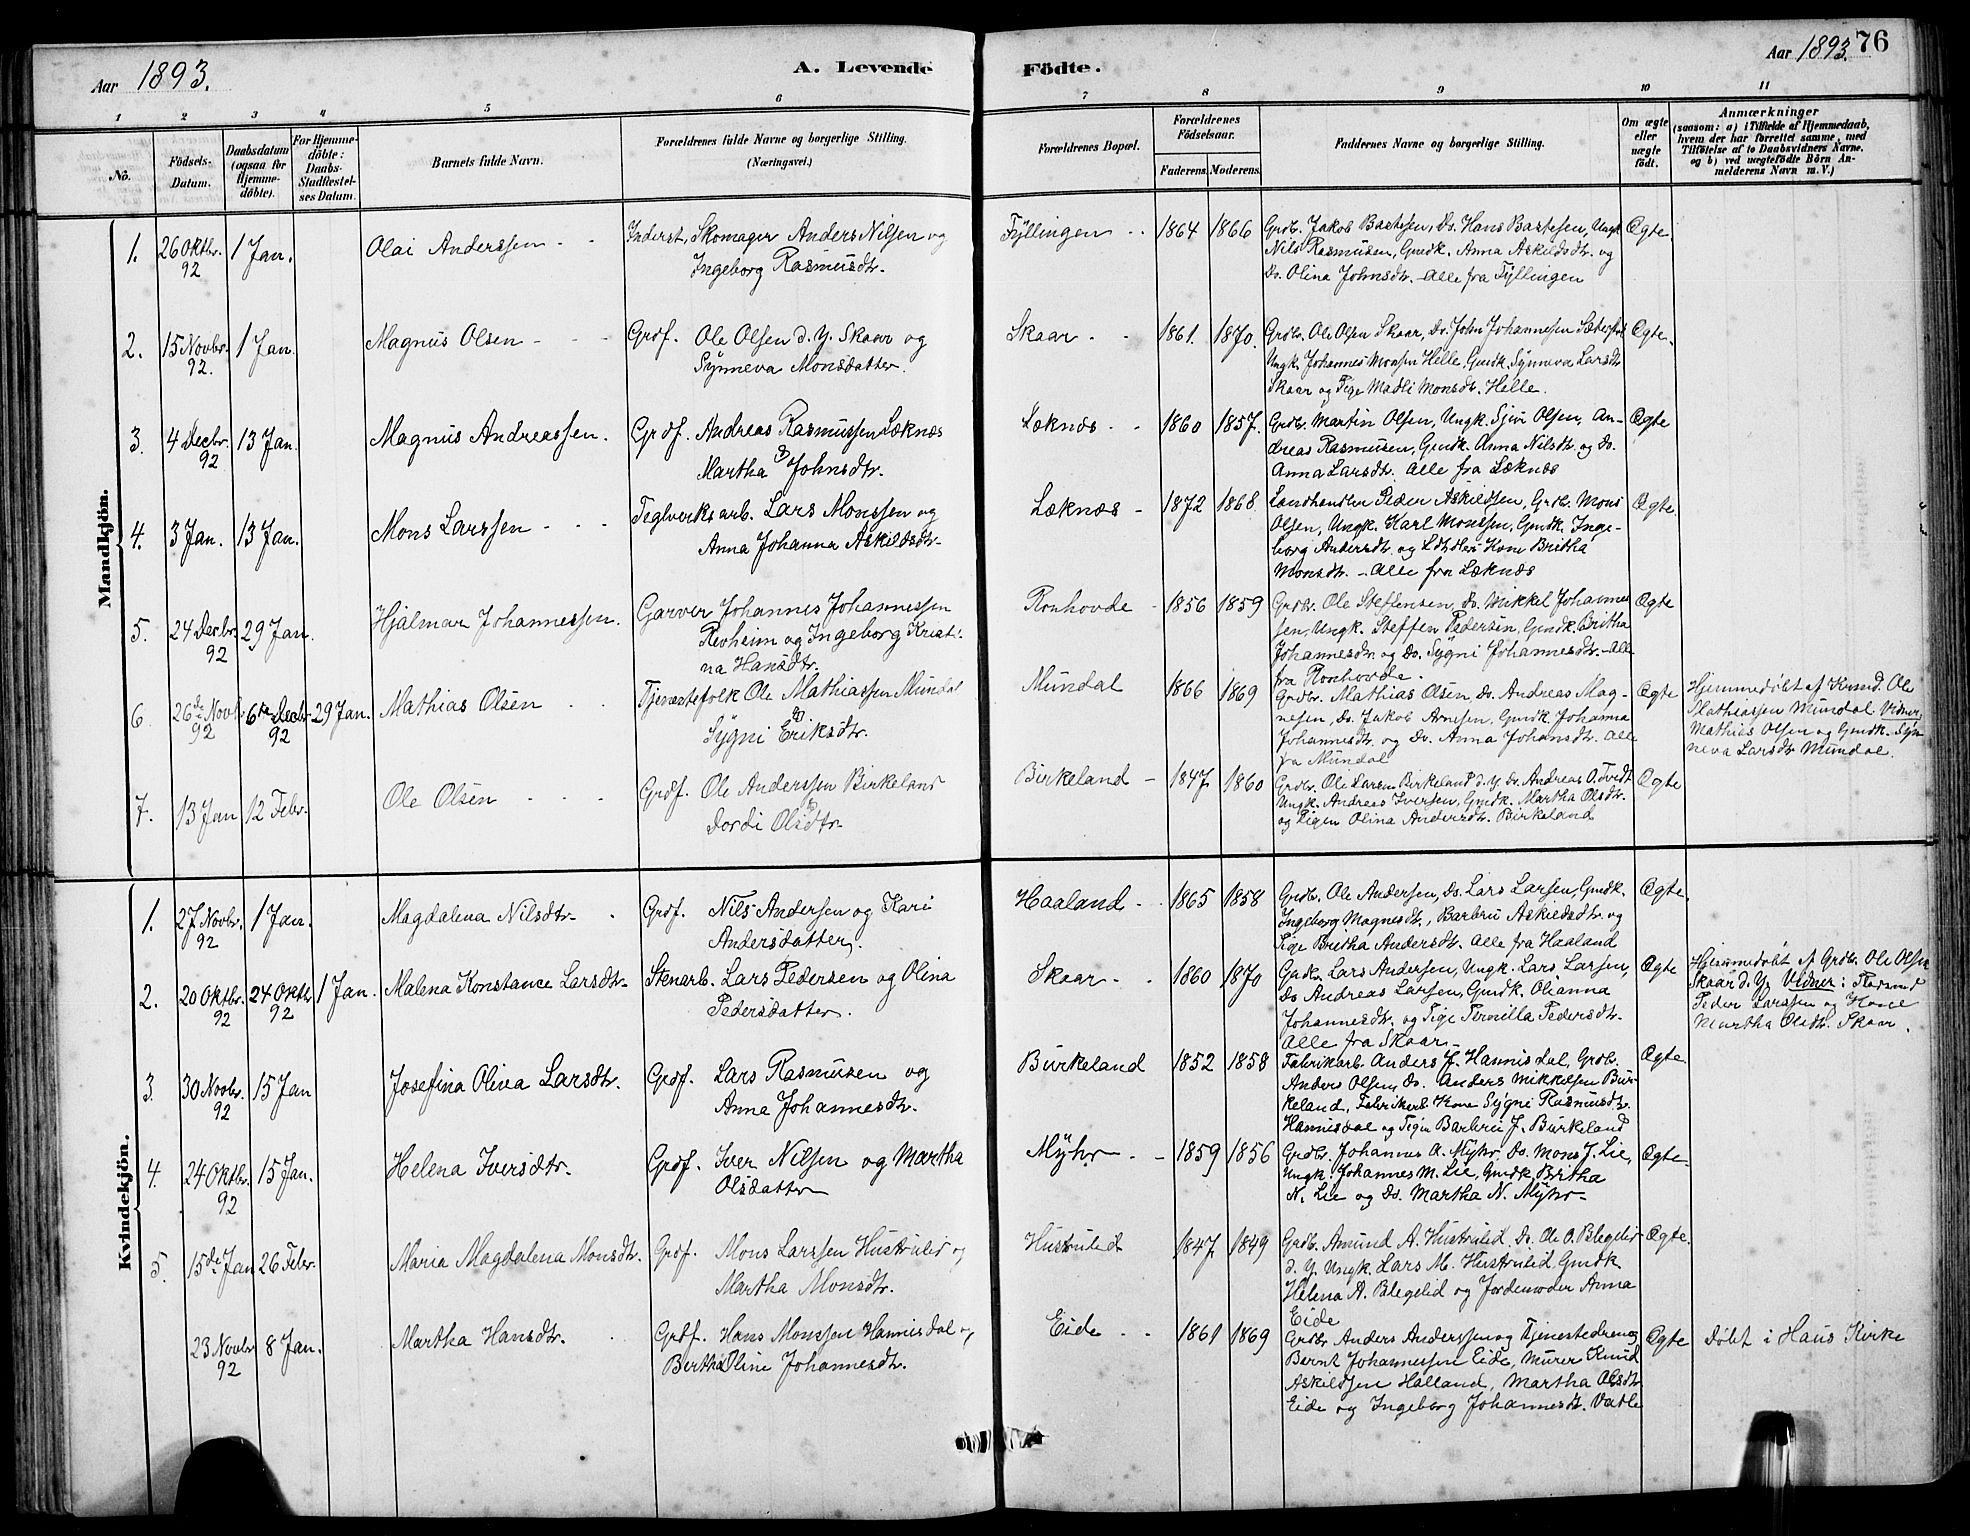 Aar 1893.
A. Levende Födte.
Aar 1893. 76
1 2 3 4 5 6 7 8 9 10 11
No.
Födsels-
Datum.
Daabsdatum
(ogsaa for
Hjemme-
döbte).
For Hjemme-
döbte:
Daabs-
Stadfæstel-
ses Datum.
Barnets fulde Navn.
Forældrenes fulde Navne og borgerlige Stilling.
(Næringsvei.)
Forældrenes Bopæl.
Forældrenes
Födselsaar.
Faderens. Moderens.
Faddernes Navne og borgerlige Stilling.
Om ægte
eller
uægte
födt.
Anmærkninger
(saasom: a) i Tilfælde af Hjemmedaab,
hvem der har forrettet samme, med
Tilföielse af to Daabsvidners Navne,
og b) ved uægtefödte Börn An-
melderens Navn m. V.)
Mandkjön.
1. 26 Oktbr. 92 1 Jan. Olai Anderssen
Inderst, Skomager Anders Nilsen og
Ingeborg Rasmusdtr.
Fyllingen 1864 1866
Grdb. Jakob Bastesen, Ds. Hans Bastesen, Ungk.
Nils Rasmusen, Gmdk. Anna Askildsdtr. og
Ds. Olina Johnsdtr. Alle fra Fyllingen
Ægte.
2. 15 Novbr. 92. 1 Jan. Magnus Olsen
Grdf. Ole Olsen d. Y. Skaar og
Synneva Monsdatter.
Skaar 1861. 1870.
Grdbr. Ole Olsen Skaar, Ds. John Johannesen
Ungk. Johannes Monsen Helle, Gmdk. Synneva Larsdtr
Skaar og Pige Madli Monsdtr. Helle.
Ægte.
3. 4 Decbr. 92 13 Jan. Magnus Andreassen.
Grdf. Andreas Rasmussen Læknæs
og
Martha Johnsdtr.
Læknæs 1860 1857.
Grdb. Martin Olsen, Ungk. Sjur Olsen, An-
dreas Rasmusen, Gmdk. Anna Nilsdtr. og Ds.
Anna Larsdtr. Alle fra Læknæs
Ægte
4. 3 Jan. 13 Jan. Mons Larssen
Teglverksarb. Lars Monssen og
Anna Johanna Askildsdtr.
Læknæs 1872 1868
Landhandler Peder Askildsen, Grdb. Mons
Olsen, Ungk. Karl Monssen, Gmdk. Inge-
borg Andersdtr. og Kone Britha
Monsdtr. Alle fra Læknæs
Ægte.
5. 24 Decbr. 92 29 Jan. Hjalmar Johannessen.
Garver Johannes Johannessen
Revheim og Ingeborg Kristi-
na Hansdtr.
Ronhovde 1856 1859
Grdbr. Ole Steffensen, Ds. Mikkel Johannes
sen, Ungk. Steffen Pedersen, Gmdk. Britha
Johannesdtr. og Ds. Sygni Johannesdtr. Alle
fra Ronhovde.
Ægte
6. 26de Novbr. 92 6te Decbr. 92 29 Jan. Mathias Olsen
Tjenestefolk Ole Mathiassen Mundal
og
Sygni Eriksdtr.
Mundal 1866 1869
Grdbr. Mathias Olsen, Ds. Andreas Mag-
nesen, Ds. Jakob Arnesen, Gmdk. Johanna
Johannesdtr. og Ds. Anna Johansdtr. Alle
fra Mundal
Ægte
Hjemmedøbt af Ole
Mathiassen Mundal. Vidner:
Mathias Olsen og Gmdk. Syn-
neva Larsdtr. Mundal.
7. 13 Jan 12 Febr. Ole Olsen
Grdf. Ole Anderssen Birkeland
og
Dordi Olsdtr.
Birkeland 1847 1860
Grdbr. Ole Larsen Birkeland d. Y. Ds. Andreas O. Tvedt
Ungk. Andreas Iversen, Gmdk. Martha Olsdtr.
og Pigen Olina Andersdtr. Birkeland
Ægte
Kvindekjön.
1. 27 Novbr. 92 1 Jan. Magdalena Nilsdtr.
Grdf. Nils Andersen og Kari
Andersdatter.
Haaland 1865 1858
Grdbr. Ole Andersen, Ds. Lars Larsen, Gmdk.
Ingeborg Magnesdtr., Barbru Askildsdtr. og
Pige Britha Andersdtr. Alle fra Haaland
Ægte.
2. 20 Oktbr. 92 24 Oktbr. 92 1 Jan. Malena Konstance Larsdtr.
Stenarb. Lars Pedersen og Olina
Pedersdatter.
Skaar 1860 1870
Grdb. Lars Andersen, Ungk. Lars Larsen,
Ds. Andreas Larsen, Gmdk. Olianna
Johannesdtr. og Pige Pernilla Pedersdtr.
Alle fra Skaar.
Ægte
Hjemmedøbt af Grdbr. Ole Olsen
Skaar d. Y. Vidner:
Peder Larssen og Kone
Martha Olsdtr. Skaar.
3. 30 Novbr. 92 15 Jan Josefina Oliva Larsdtr.
Grdf. Lars Rasmusen og
Anna Johannesdtr.
Burkeland 1852 1858
Fabrikarb. Anders J. Hannisdal, Grdbr.
Anders Olsen, Ds. Anders Mikkelsen Bur-
keland, Fabrikarb. Kone Sygni Rasmusdtr.
Hannisdal og Pige Barbru J. Burkeland
Ægte.
4. 24 Oktbr. 92 15 Jan. Helena Iversdtr.
Grdf. Iver Nilsen og Martha
Olsdatter
Myhr 1859 1856
Grdbr. Johannes A. Myhr, Ds. Mons J. Lie,
Ungk. Johannes M. Lie, Gmdk. Britha
N. Lie og Ds. Martha N. Myhr
Ægte.
5. 15de Jan 26 Febr. Maria Magdalena Monsdtr.
Grdf. Mons Larssen Hustrulid og
Martha Monsdtr.
Hustrulid 1847 1849
Grdb. Amund A. Hustrulid, Ds. Ole O. Blegelid
d. Y. Ungk. Lars M. Hustrulid, Gmdk.
Helena A. Blegelid og Jordemoder Anna
Eide
Ægte.
23 Novbr. 92 8 Jan. Martha Hansdtr.
Grdf. Hans Monssen Hannisdal og
Bertha Oline Johannesdtr.
Eide 1861 1869
Grdbr. Anders Anderssen og Tjenestedreng
Bernt Johannessen Eide, Murer Knud
Askildsen Halland, Martha Olsdtr
Eide og Ingeborg Johannesdt. Vatle
Ægte
Døbt i Haus Kirke